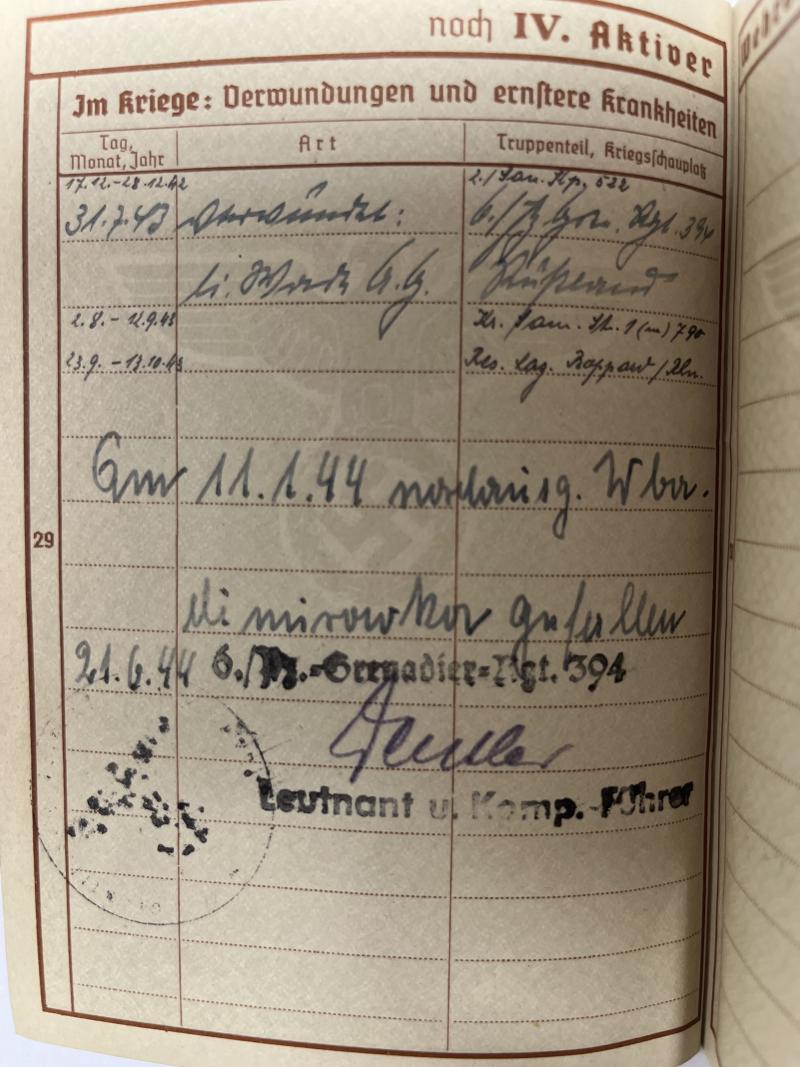 noch IV. Aktiver
Im Kriege: Verwundungen und ernstere Krankheiten
Tag, Monat, Jahr
Art
Truppenteil, Kriegsschauplatz
17.12.-28.12.42 2./San. Kp. 522
31.7.43 Verwundet: 6./Pz. Gren. Rgt. 394
li. Wade A.G. Rußland
2.8. - 12.9.43 Kr. Sam. St. 1 (m) 790
23.9. - 13.10.43 Res. Laz. Boppard / Rhn.
Am 11.1.44
29
gefallen
21.6.44 6./Pz.-Grenadier-Rgt. 394
Leutnant u. Komp.-Führer